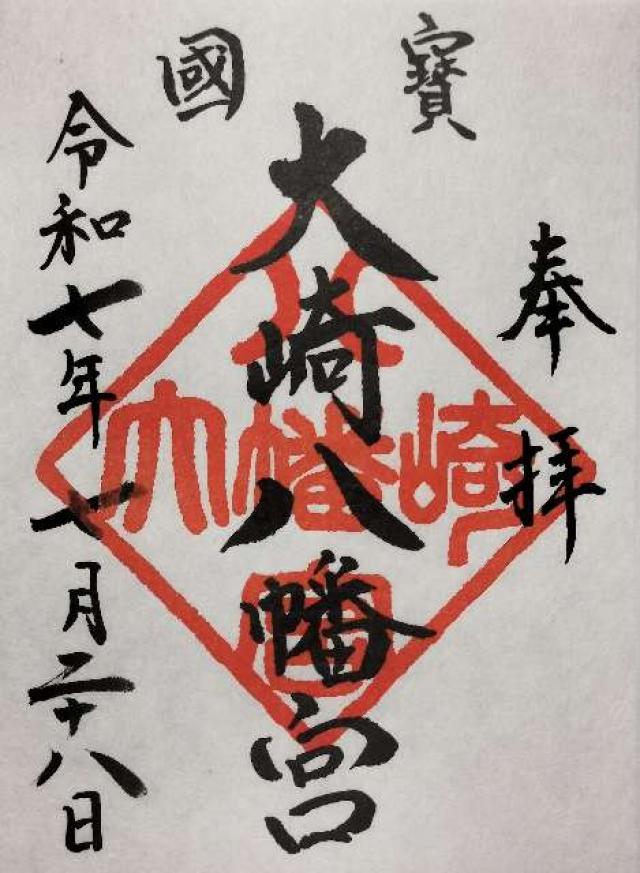 國寶
奉拝
大崎八幡宮
令和七年七月二十八日
大崎八幡宮